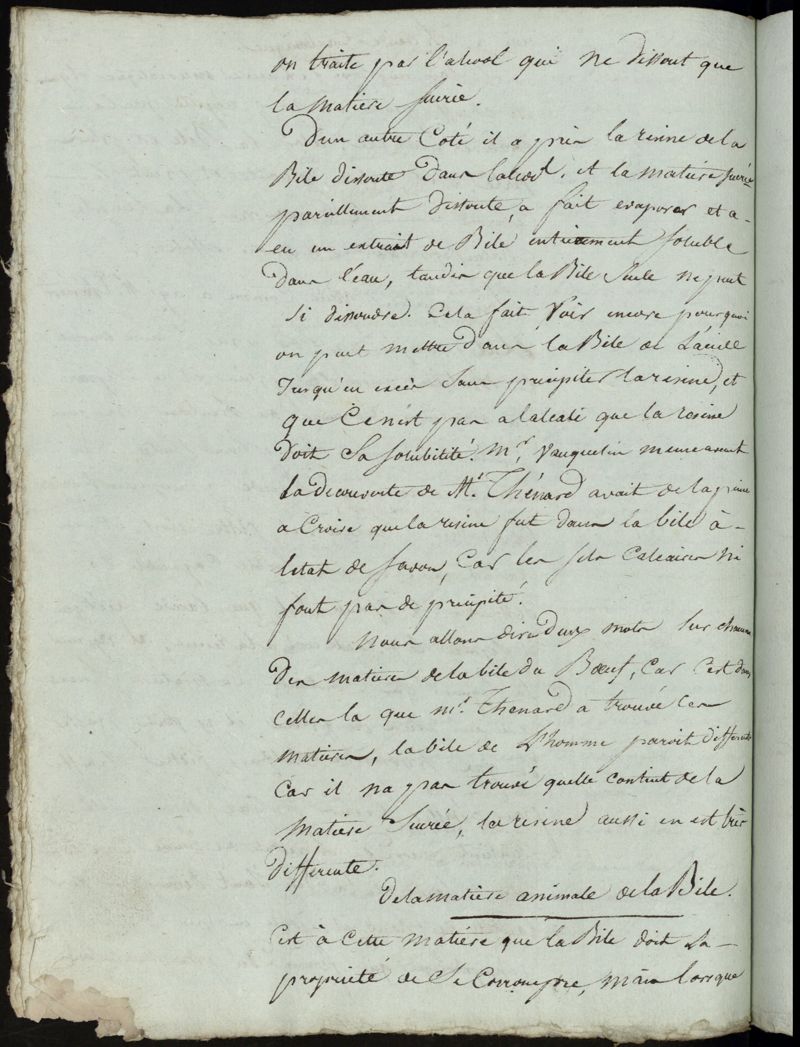 on traite par l'alcool qui ne dissout que
la matiere sucrée.
D'un autre Coté il a pris la resine de la
Bile dissoute dans l'alcool, et la matiere sucrée
pareillement dissoute, a fait evaporer et a
eu un extrait de Bile entierement soluble
dans l'eau, tandis que la Bile seule ne peut
si dissoudre. Cela fait Voir encore pourquoi
on peut mettre dans la Bile de L'acide
jusqu'en excès sans precipiter la resine, et
que Ce n'est pas a l'alcali que la resine
doit Sa solubilité. Mr. Vauquelin meme avant
la decouverte de Mr. Thénard avait de la peine
a Croire que la resine fut dans la bile à
letat de savon, Car les sels Calcaires ni
font pas de precipité.
Nous allons dire deux mots sur chacune
des matieres de la bile du Bœuf, Car C'est dans
celles la que Mr. Thenard a trouvé ces
matieres, la bile de L'homme paroit differente
Car il na pas trouvé quelle contint de la
matiere Sucrée, la resine aussi en est très
differente.
De la matiere animale de la Bile.
C'est à Cette matiere que la Bile doit La
propriété de Se Corrompre, mais lorsque